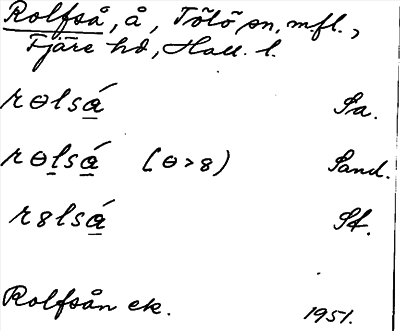 Rolfså, å, Tölö sn, mfl.,
Fjäre hd, Hall. l.
rɵlsá̱ Sa.
rɵḻsá̱ (ɵ>8) Sand.
r8lsá̱ Sf.
Rolfsån ek. 1951.